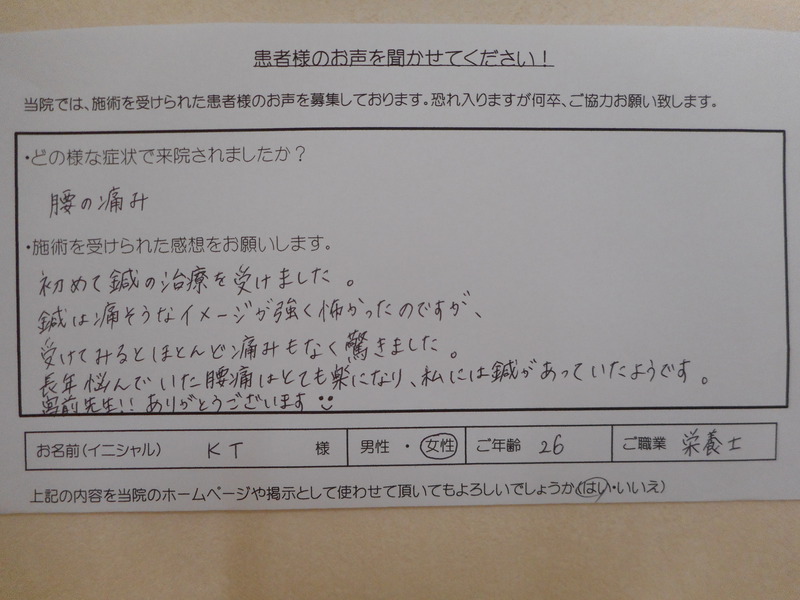 患者様のお声を聞かせてください！
当院では、施術を受けられた患者様のお声を募集しております。恐れ入りますが何卒、ご協力お願い致します。
・どの様な症状で来院されましたか？
腰の痛み
・施術を受けられた感想をお願いします。
初めて鍼の治療を受けました。
鍼は痛そうなイメージが強く怖かったのですが、
受けてみるとほとんど痛みもなく驚きました。
長年悩んでいた腰痛はとても楽になり、私には鍼があっていたようです。
宮前先生!! ありがとうございます
お名前(イニシャル) KT 様 男性 ・ 女性 ご年齢 26 ご職業 栄養士
上記の内容を当院のホームページや掲示として使わせて頂いてもよろしいでしょうか(はい・いいえ)